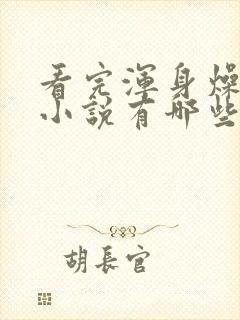 看完渾身燥
小說有哪些
胡長官